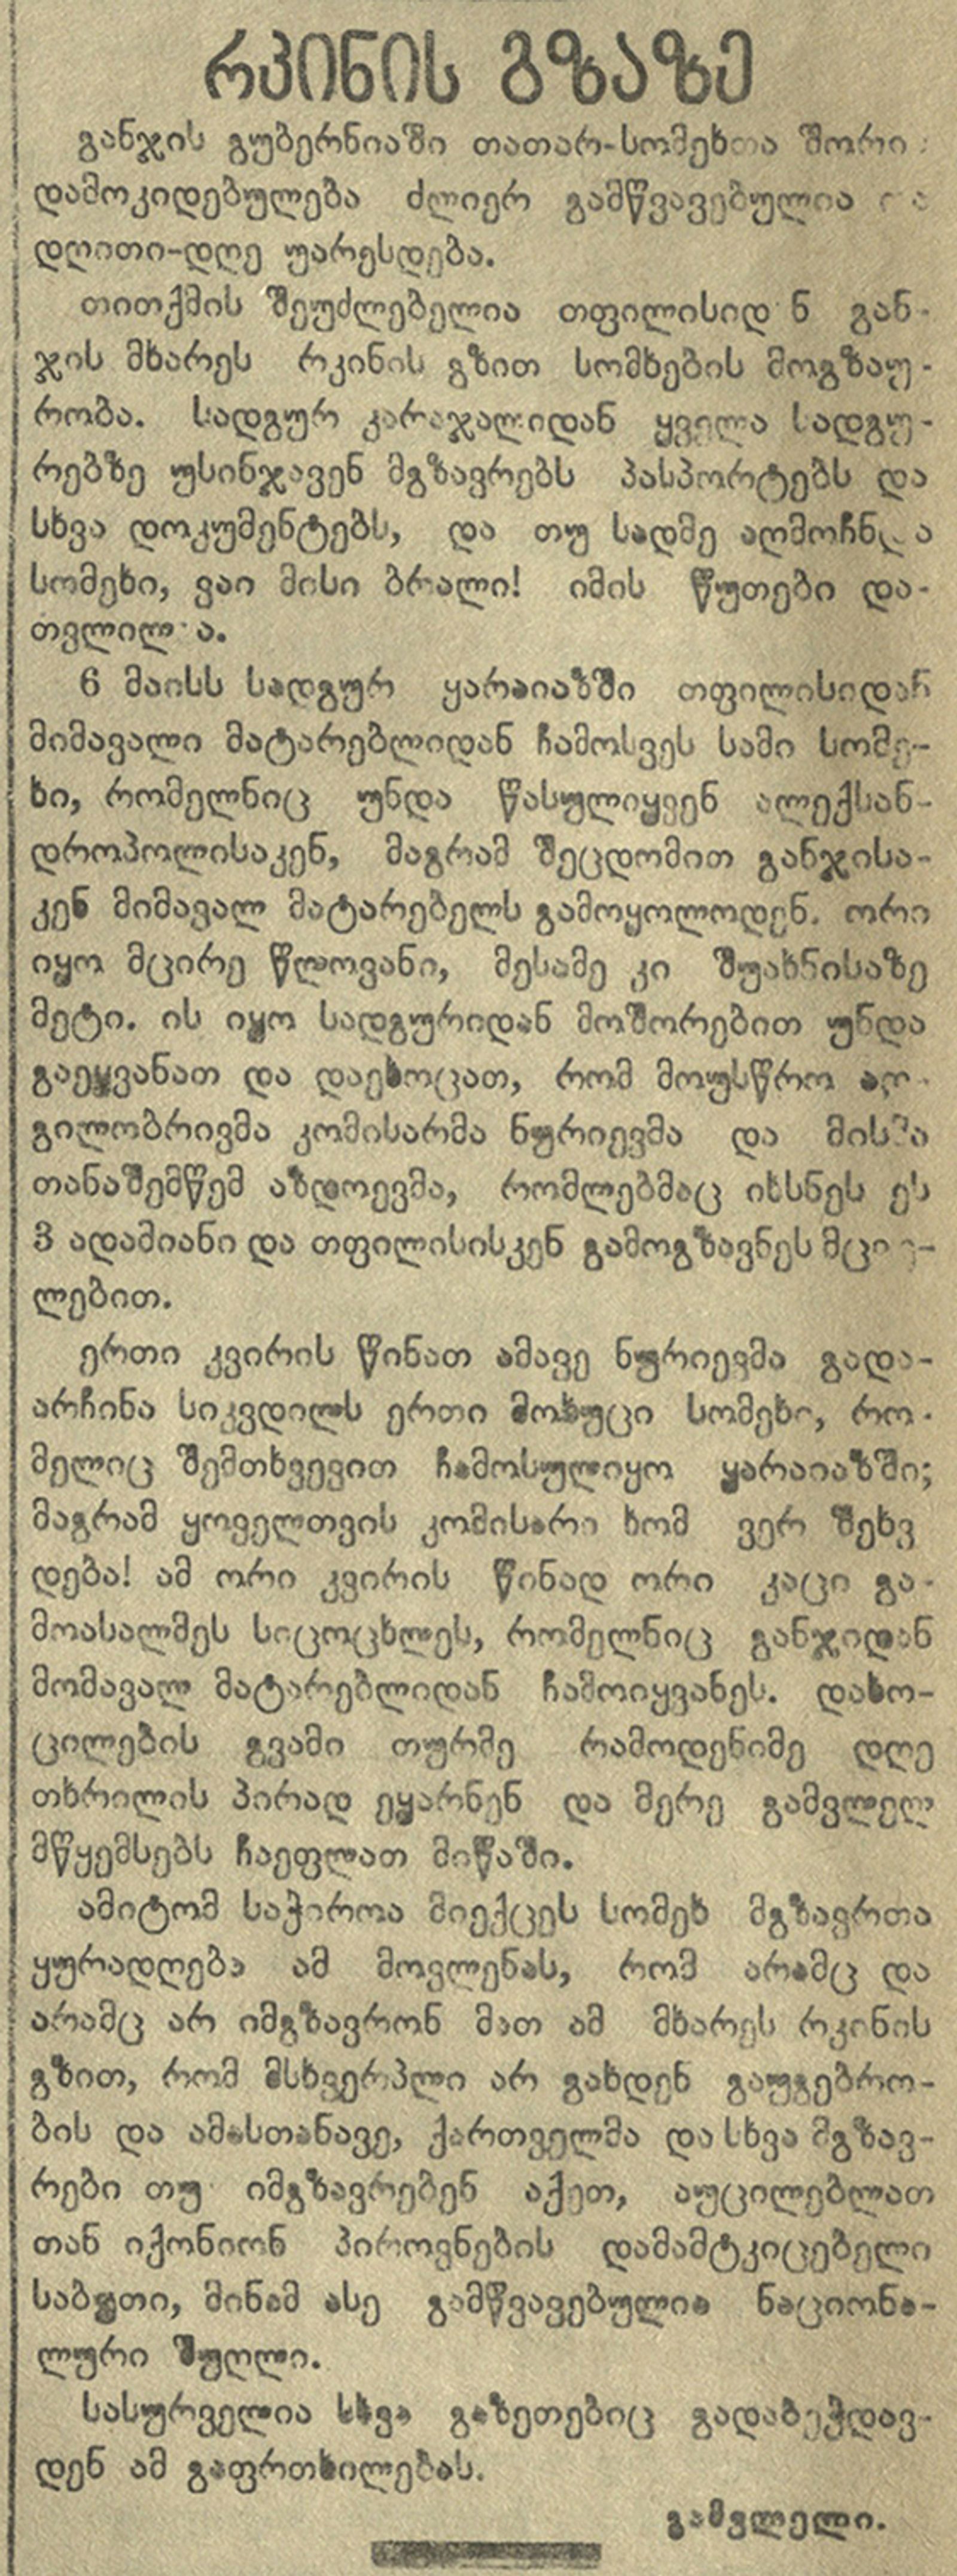 რკინის გზაზე
განჯის გუბერნიაში თათარ-სომეხთა შორის
დამოკიდებულება ძლიერ გამწვავებულია და
დღითი-დღე უარესდება.
თითქმის შეუძლებელია თფილისიდან გან-
ჯის მხარეს რკინის გზით სომხების მოგზაუ-
რობა. სადგურ კარაჯალიდან ყველა სადგუ-
რებზე უსინჯავენ მგზავრებს პასპორტებს და
სხვა დოკუმენტებს, და თუ სადმე აღმოჩნდა
სომეხი, ვაი მისი ბრალი! იმის წუთები და-
თვლილია.
6 მაისს სადგურ ყარაიაზში თფილისიდან
მიმავალი მატარებლიდან ჩამოსვეს სამი სომე-
ხი, რომელნიც უნდა წასულიყვენ ალექსან-
დროპოლისაკენ, მაგრამ შეცდომით განჯისა-
კენ მიმავალ მატარებელს გამოყოლოდენ. ორი
იყო მცირე წლოვანი, მესამე კი შუახნისაზე
მეტი. ის იყო სადგურიდან მოშორებით უნდა
გაეყვანათ და დაეხოცათ, რომ მოუსწრო ად-
გილობრივმა კომისარმა ნურიევმა და მისმა
თანაშემწემ აზდოევმა, რომლებმაც იხსნეს ეს
3 ადამიანი და თფილისისკენ გამოგზავნეს მცვე-
ლებით.
ერთი კვირის წინათ ამავე ნურიევმა გადა-
არჩინა სიკვდილს ერთი მოხუცი სომეხი, რო-
მელიც შემთხვევით ჩამოსულიყო ყარაიაზში;
მაგრამ ყოველთვის კომისარი ხომ ვერ შეხვ
დება! ამ ორი კვირის წინად ორი კაცი გა-
მოასალმეს სიცოცხლეს, რომელნიც განჯიდან
მომავალ მატარებლიდან ჩამოიყვანეს. დახო-
ცილების გვამი თურმე რამოდენიმე დღე
თხრილის პირად ეყარნენ და მერე გამვლელ
მწყემსებს ჩაეფლათ მიწაში.
ამიტომ საჭიროა მიექცეს სომეხ მგზავრთა
ყურადღება ამ მოვლენას, რომ არამც და
არამც არ იმგზავრონ მათ ამ მხარეს რკინის
გზით, რომ მსხვერპლი არ გახდენ გაუგებრო-
ბის და ამასთანავე, ქართველმა და სხვა მგზავ-
რები თუ იმგზავრებენ აქეთ, აუცილებლათ
თან იქონიონ პიროვნების დამამტკიცებელი
საბუთი, მინამ ასე გამწვავებულია ნაციონა-
ლური შუღლი.
სასურველია სხვა გაზეთებიც გადაბეჭდავ-
დენ ამ გაფრთხილებას.
გამვლელი.